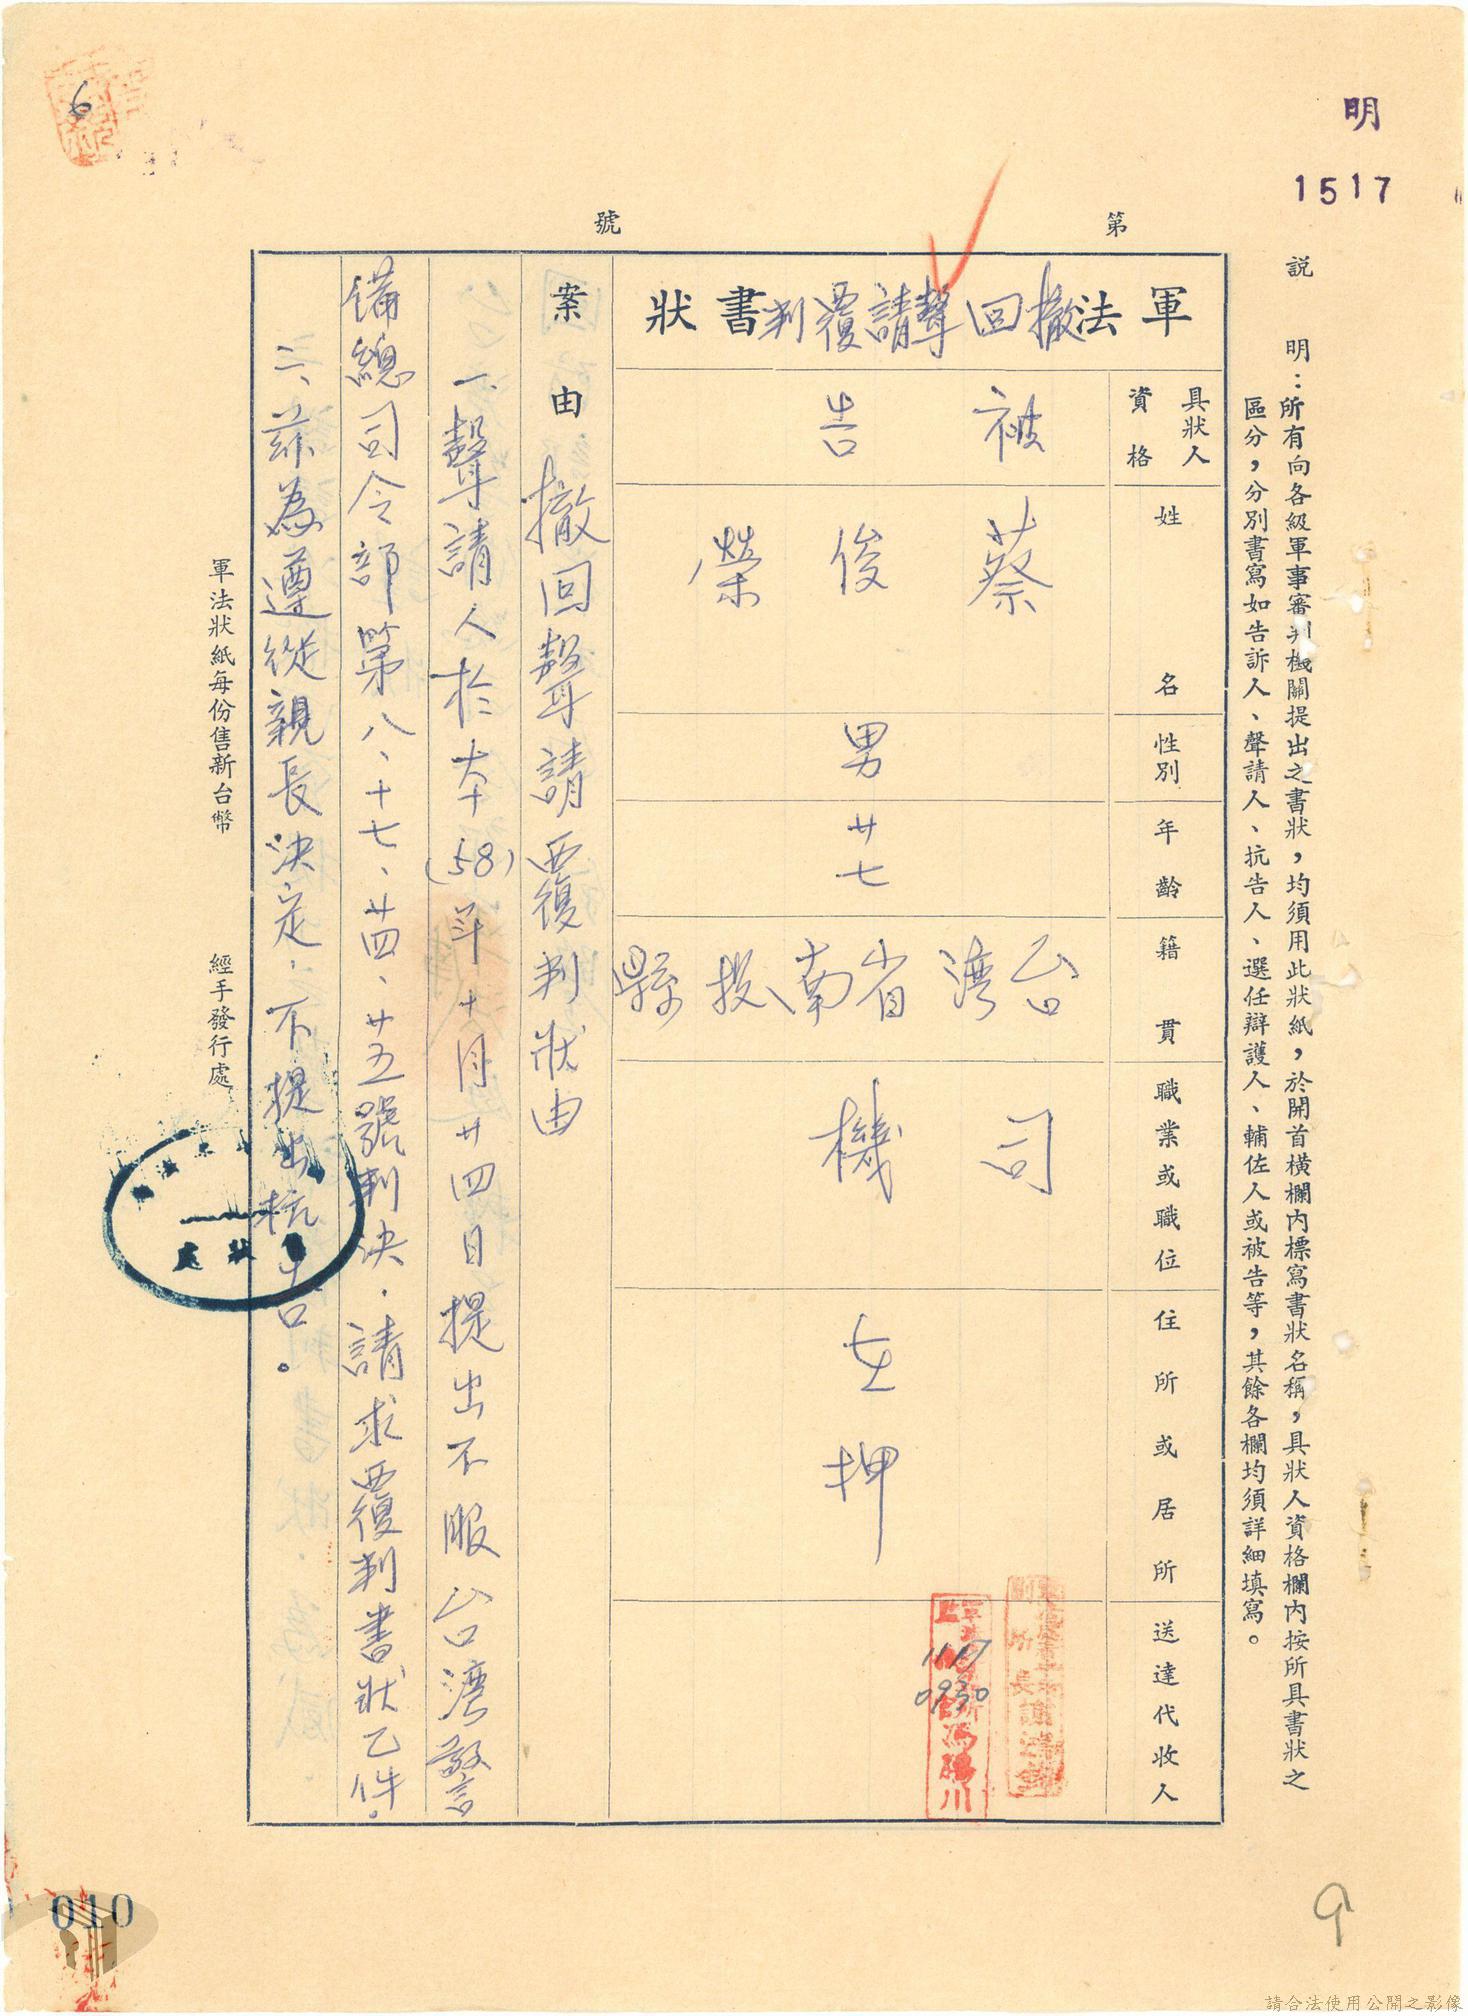 明
1517
6
第
號
說 明：所有向各級軍事審判機關提出之書狀，均須用此狀紙，於開首橫欄內標寫書狀名稱，具狀人資格欄內按所具書狀之
區分，分別書寫如告訴人、聲請人、抗告人、選任辯護人、輔佐人或被告等，其餘各欄均須詳細填寫。
軍法撤回聲請覆判書狀
具狀人資格
被告
姓名
蔡俊榮
性別
男
年齡
廿七
籍貫
台湾省南投縣
職業或職位
司機
住所或居所
在押
送達代收人
11.17
0930
案由 撤回聲請覆判狀由
一、聲請人於本(58)年十月廿四日提出不服台湾警
備總司令部第八、十七、廿四、廿五號判決．請求覆判書狀乙件．
二、茲為遵從親長決定．不提出抗告。
軍法狀紙每份售新台幣
經手發行處
狀處
010
9
請合法使用公開之影像